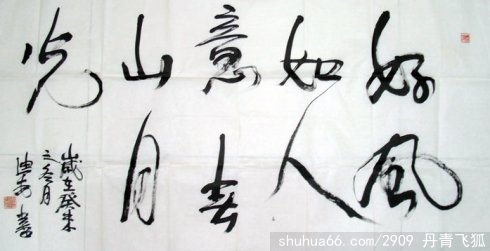 好風
如人
意春
山月
光
歲在癸未
之冬月
shuhua66.com/2909 丹青飞狐